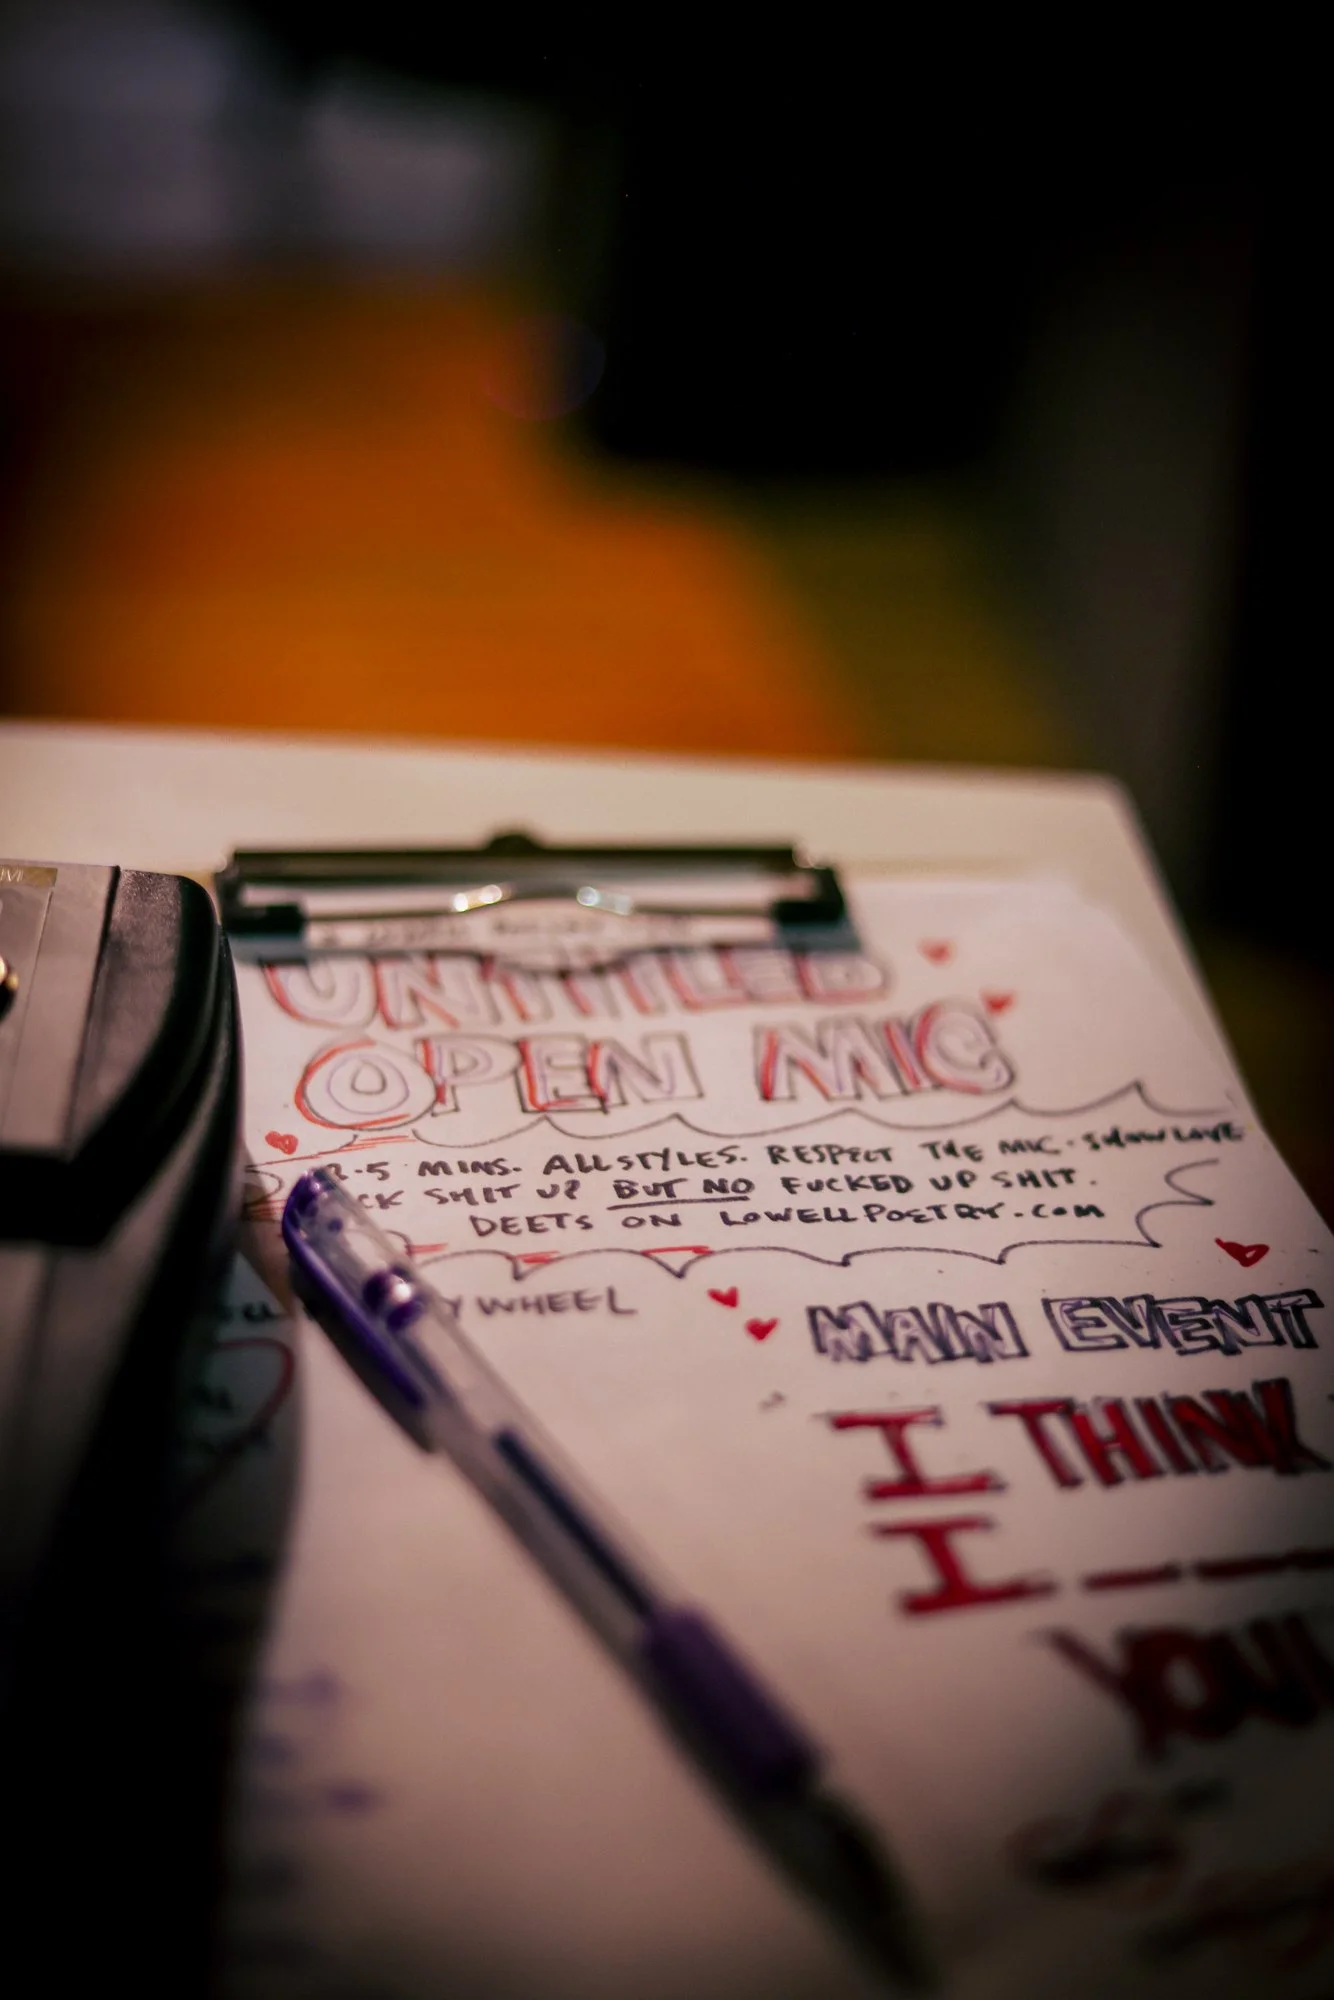 UNTITLED
OPEN MIC
-5 MINS. ALL STYLES. RESPECT THE MIC. SHOW LOVE
CK SHIT UP BUT NO FUCKED UP SHIT.
DEETS ON LOWELLPOETRY.COM
Y WHEEL
MAIN EVENT
I THINK
I _ _
YOU